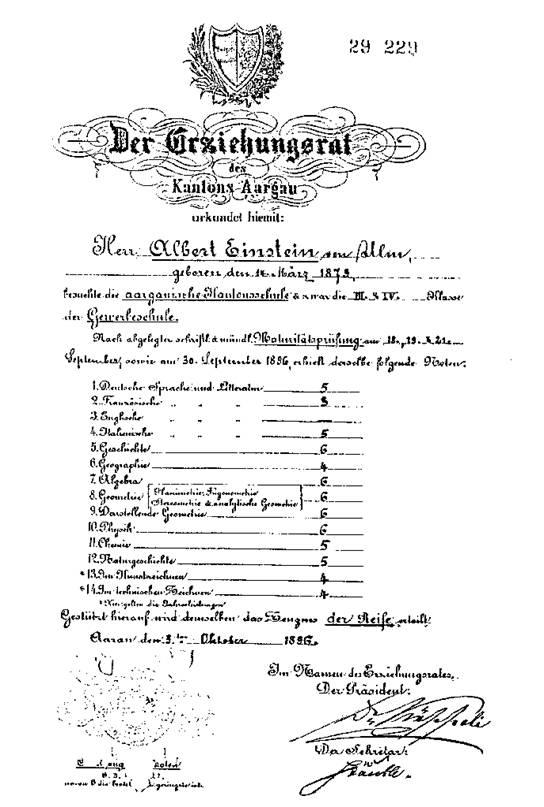 29 229
Der Erziehungsrat
des
Kantons Aargau
urkundet hiemit:
Herr Albert Einstein von Ulm,
geboren den 14. März 1879,
besuchte die aargauische Kantonsschule & zwar die III. & IV. Klasse
der Gewerbeschule.
Nach abgelegter schriftl. & mündl. Maturitätsprüfung am 18., 19. & 21.
September, sowie am 30. September 1896, erhielt derselbe folgende Noten:
1. Deutsche Sprache und Litteratur 5
2. Französische " " " 3
3. Englische " " " —
4. Italienische " " " 5
5. Geschichte 6
6. Geographie 4
7. Algebra 6
8. Geometrie { Planimetrie, Trigonometrie
Stereometrie & analytische Geometrie } 6
9. Darstellende Geometrie 6
10. Physik 6
11. Chemie 5
12. Naturgeschichte 5
* 13. Im Kunstzeichnen 4
* 14. Im technischen Zeichnen 4
* Hier gelten die Jahresleistungen
Gestützt hierauf wird demselben das Zeugnis der Reife erteilt.
Aarau den 3ten Oktober 1896.
Im Namen des Erziehungsrates,
Der Präsident:
Der Sekretär: